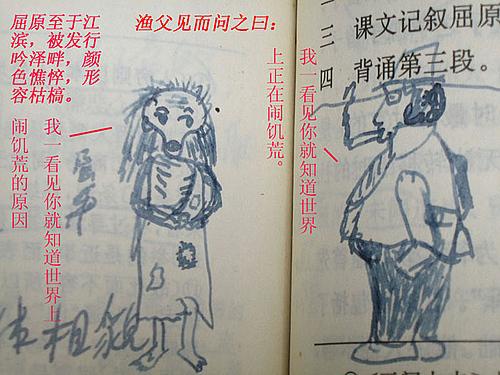 屈原至于江
滨，被发行
吟泽畔，颜
色憔悴，形
容枯槁。
渔父见而问之曰：
我一看见你就知道世界
上正在闹饥荒。
我一看见你就知道世界上
闹饥荒的原因
三 课文记叙屈原
四 背诵第三段。
相貌